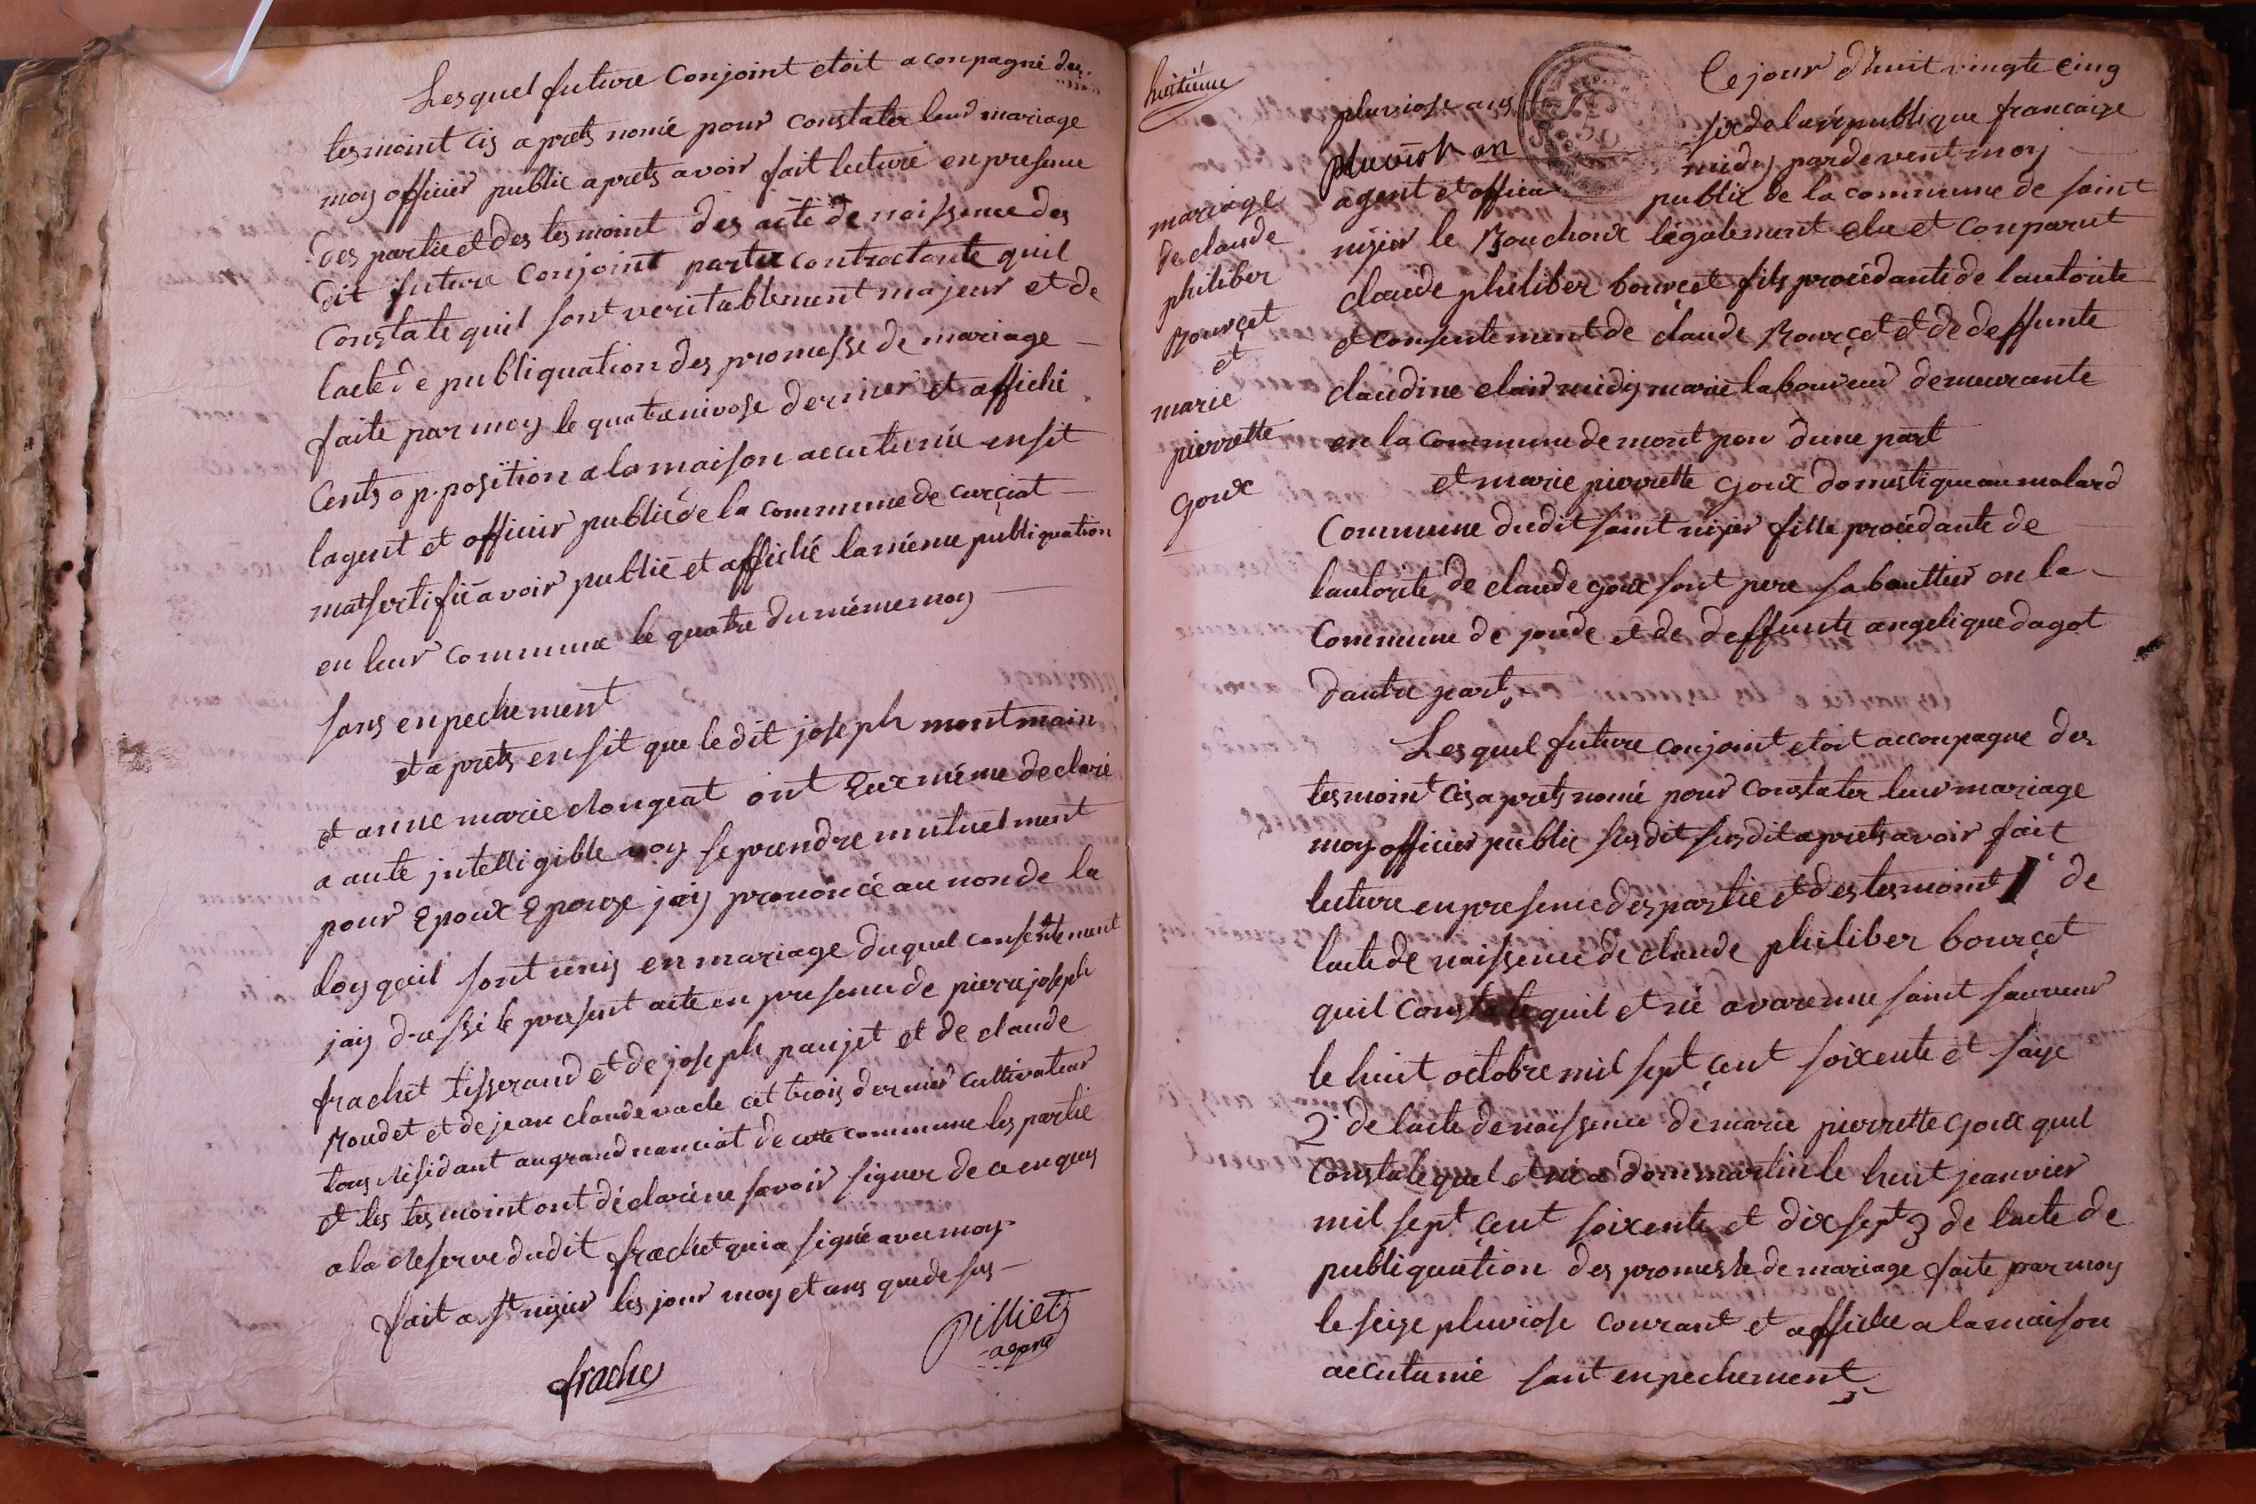 Lesquel future Conjoint etoit aconpagné des
tesmoint cis aprets nomé pour constater leur mariage
moy officier public aprets avoir fait lecture en presence
des partie et des tesmoint des acte de naissence des
dit future conjoint partie contractante quil
constate quil sont veritablement majeur et de
lacte de publiquation des promesse de mariage
faite par moy le quatre nivose dernier et affiché
cents opposition a la maison accutumée ensit
lagent et officier public de la commune de curciat
mat sertifié avoir publié et affiché la méme publiquation
en leur commune le quatre du méme moy
sans enpechement
et aprets ensit que le dit joseph montmain
et anne marie clongeat ont Eux méme declaré
a aute jntelligible voy se prendre mutuelment
pour Epoux Epouze jaiy prononcé au non de la
loy quil sont unis en mariage duquel consentement
jaiy dressé le present acte en presence de pierre joseph
frachet tisserand et de joseph paujet et de claude
Roudet et de jean claude vacle cet trois dernier cultivateur
tous residant au grand nanciat de cette commune les partie
et les tesmoint ont déclaré ne savoir signer de ce enquis
a la reserve dudit frachet qui a signé avec moy
fait a st nizier les jour moy et ans que de sus
Pilliet
agent
frachet
huitieme
mariage
de claude
philiber
Bourcet
et
marie
pierrette
Goux
Ce jour dhuit vingte cinq
pluviose ans six de la republique francaize
pluviose an midy par devent moy
agent et officier public de la commune de saint
nizier le Bouchoux légalement elu et conparut
claude philiber bourcet fils procédante de lautorite
et consentement de claude Bourcet et de deffunte
claudine clair midy marie laboureur demeurante
en la commune de mont pon dune part
et marie pierrette Goux domestique au malard
Commune dudit saint nizier fille procédante de
lautorite de claude goux sont pere sabouttier en la
Commune de joude et de deffunte angelique dagot
dautre part
Lesquel future conjoint etoit acconpagne des
tesmoint cis aprets nomé pour constater leur mariage
moy officier public susdit susdit aprets avoir fait
lecture en presence des partie et des tesmoint 1° de
lacte de naissence de claude philiber bourcet
quil constate quil et né a varenne saint sauveur
le huit octobre mil sept cent soixente et saize
2° de lacte de naissence de marie pierrette Goux quil
constate quel et né a dommartin le huit jeanvier
mil sept cent soixente et dix sept 3 de lacte de
publiquation des promesse de mariage faite par moy
le seize pluviose courant et affiche a la maison
accutumé sant enpechement